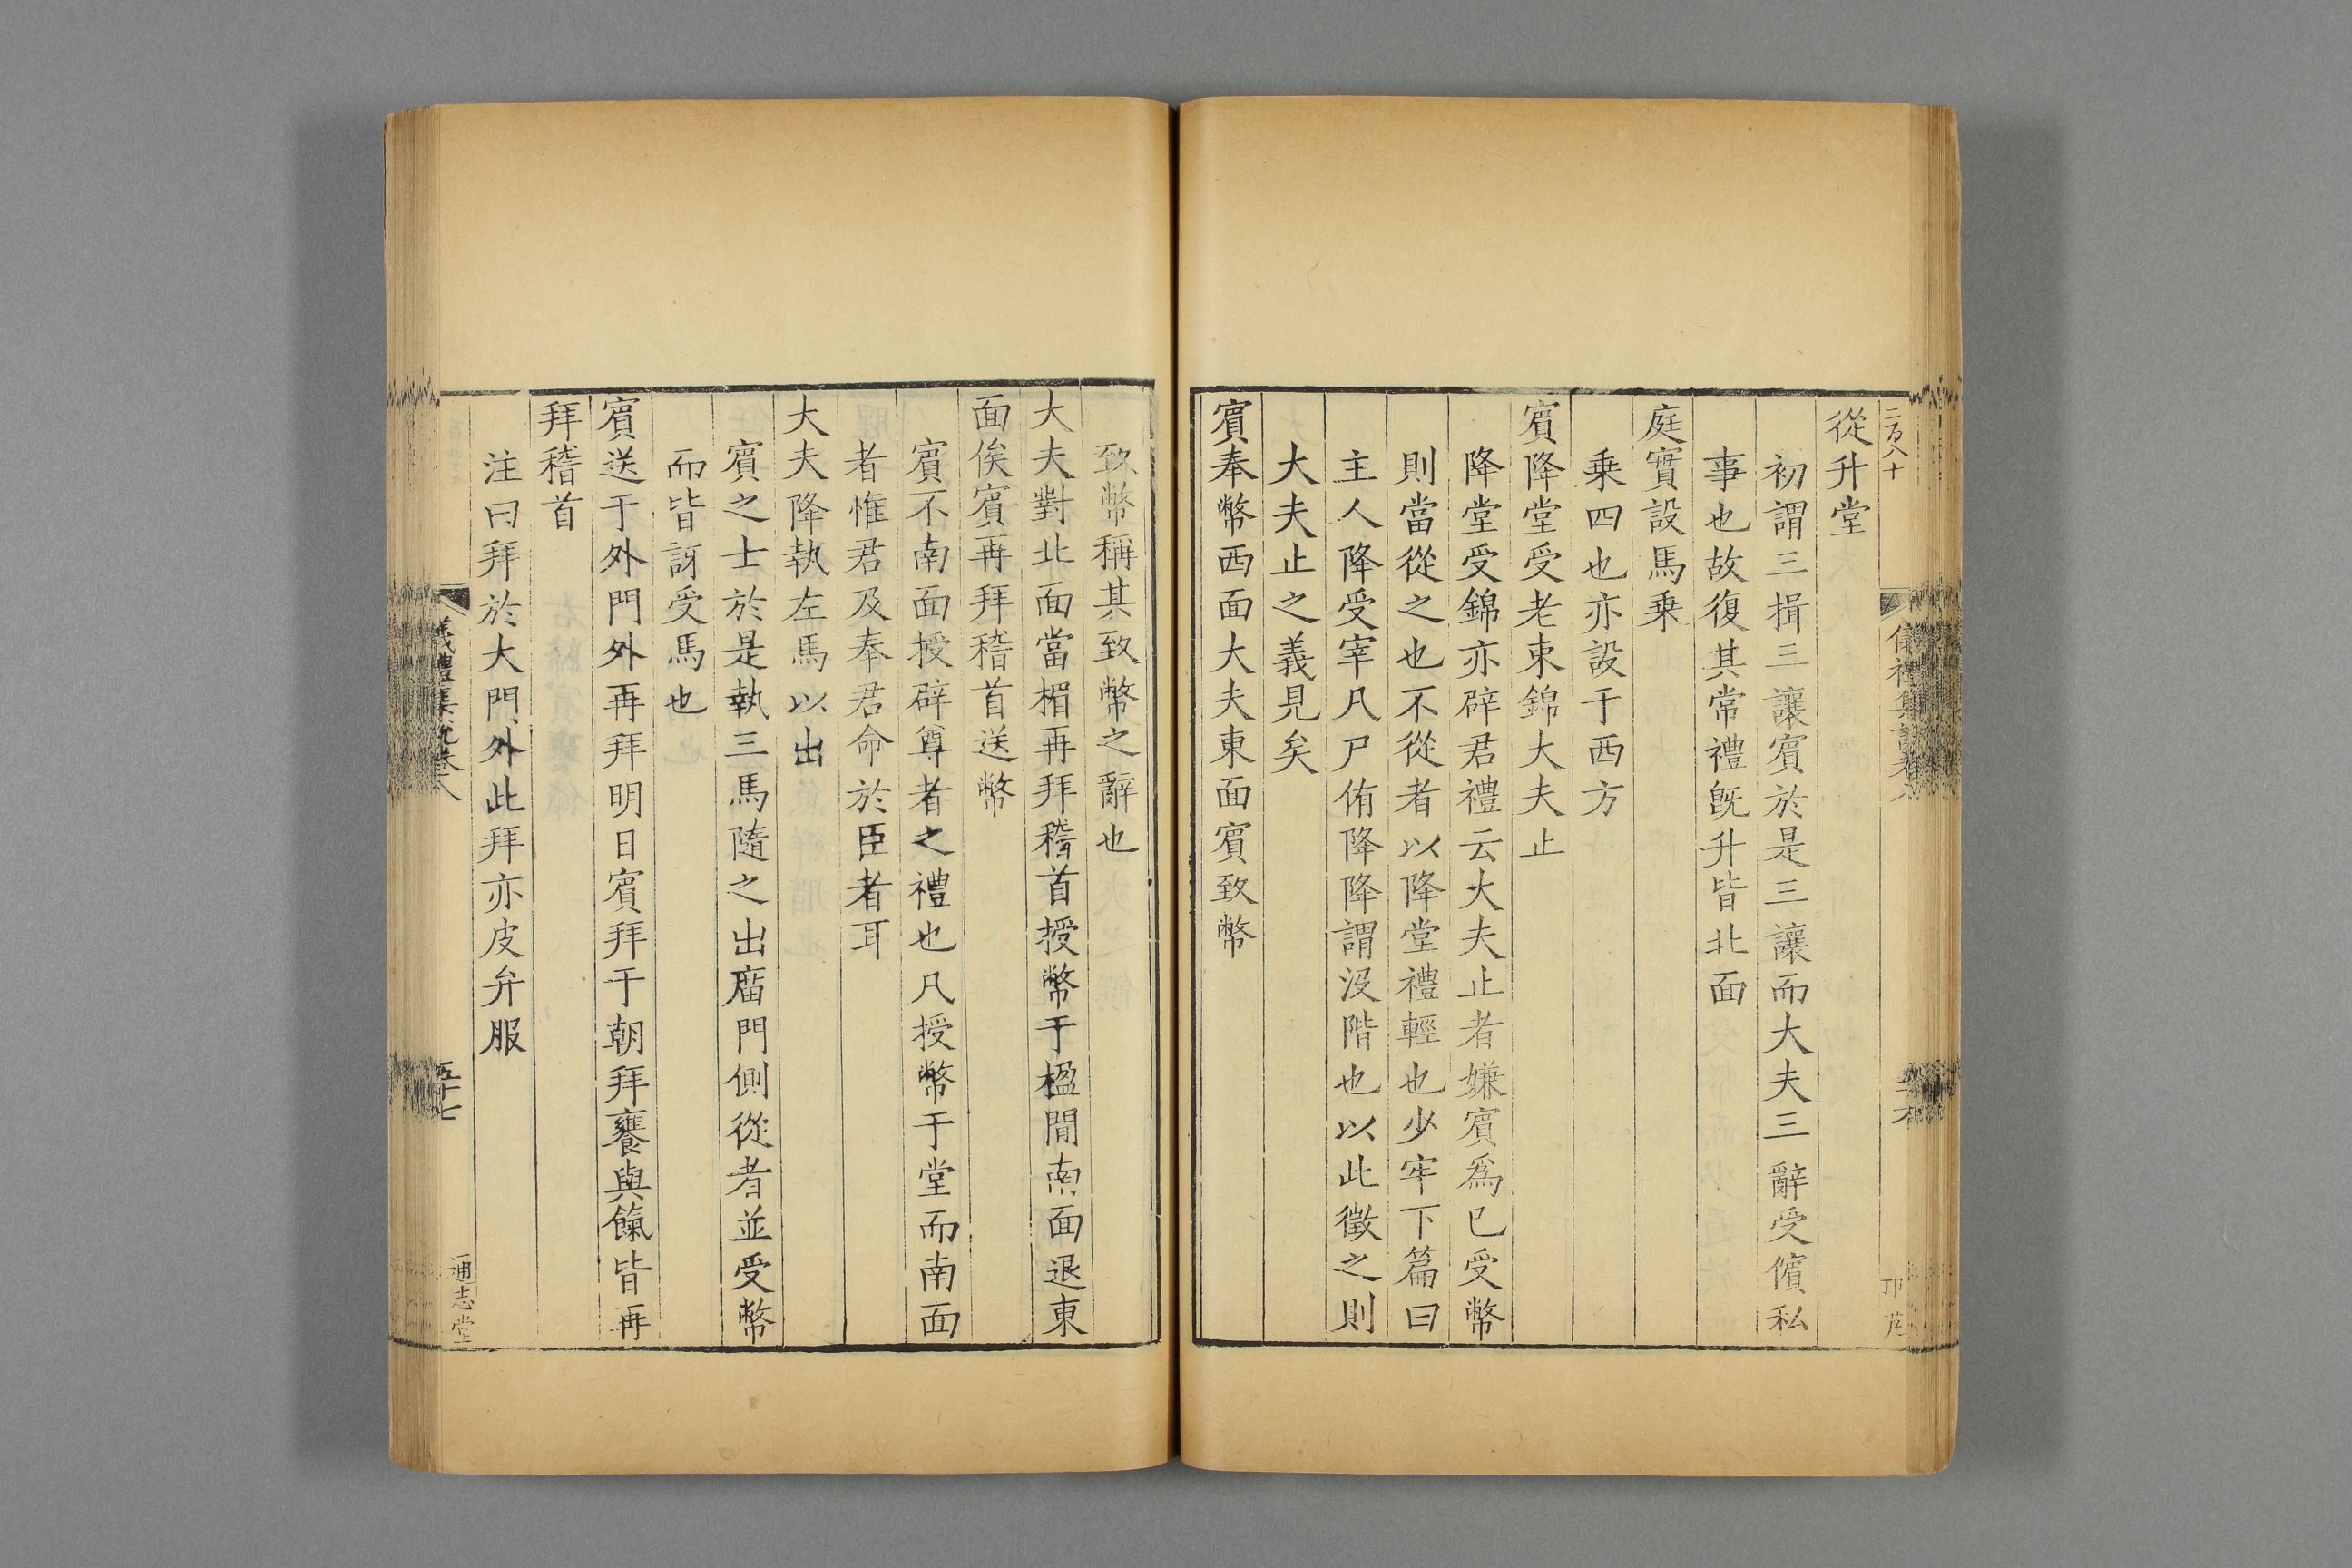 二百八十
從升堂
初謂三揖三讓賓於是三讓而大夫三辭受儐私
事也故復其常禮旣升皆北面
庭實設馬乗
乗四也亦設于西方
賓降堂受老束錦大夫止
降堂受錦亦辟君禮云大夫止者嫌賓爲已受幣
則當從之也不從者以降堂禮輕也少牢下篇曰
主人降受宰几尸侑降降謂沒階也以此徵之則
大夫止之義見矣
賓奉幣西面大夫東面賓致幣
致幣稱其致幣之辭也
大夫對北面當楣再拜稽首授幣于楹間南面退東
面俟賓再拜稽首送幣
賓不南面授辟尊者之禮也凡授幣于堂而南面
者惟君及奉君命於臣者耳
大夫降執左馬以出
賓之士於是執三馬隨之出廟門側從者並受幣
而皆訝受馬也
賓送于外門外再拜明日賓拜于朝拜饔與餼皆再
拜稽首
注曰拜於大門外此拜亦皮弁服
儀禮集說卷八
五十七
通志堂